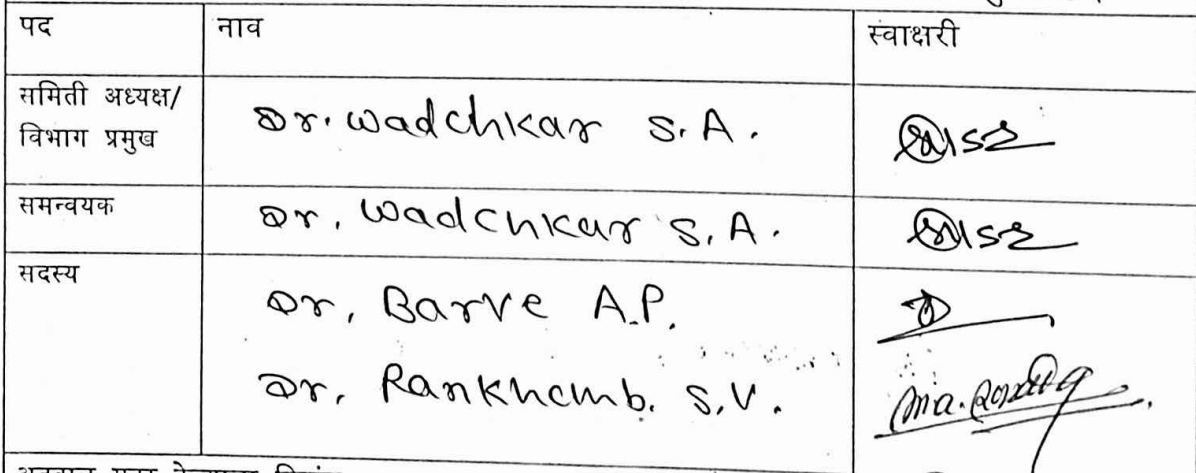 पद नाव स्वाक्षरी
समिती अध्यक्ष/
विभाग प्रमुख Dr. Wadchkar S. A.
समन्वयक Dr. Wadchkar S. A.
सदस्य
Dr. Barve A.P.
Dr. Rankhamb. S.V.